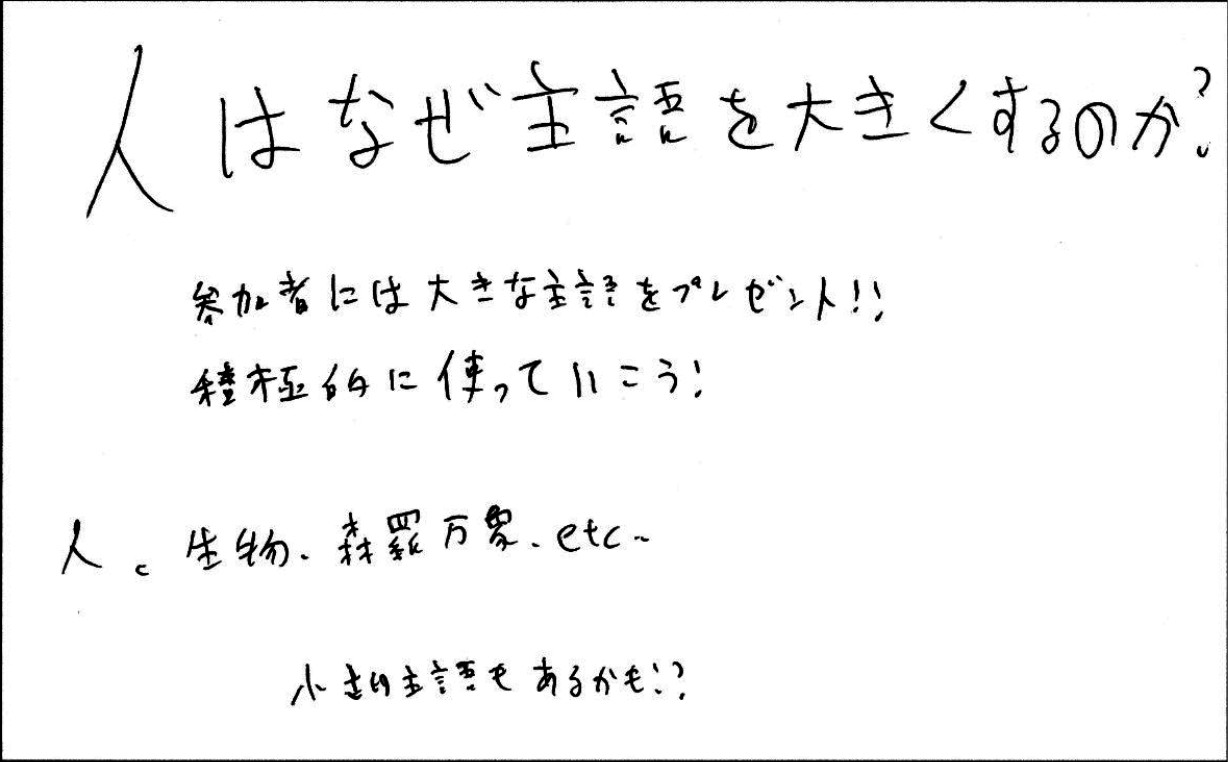 人はなぜ主語を大きくするのか?
参加者には大きな主語をプレゼント!!
積極的に使っていこう!
人。生物、森羅万象、etc~
小さな主語もあるかも!?